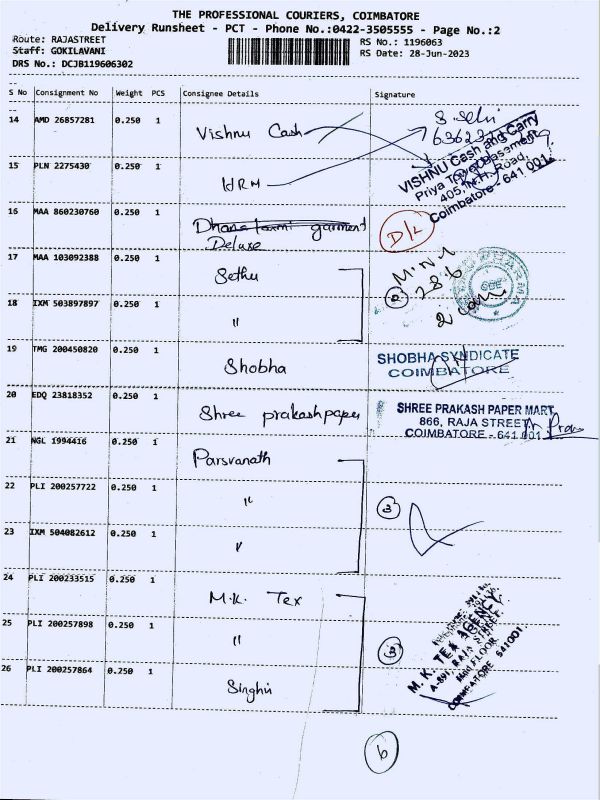 THE PROFESSIONAL COURIERS, COIMBATORE
Delivery Runsheet - PCT - Phone No.:0422-3505555 - Page No.:2
Route: RAJASTREET
RS No.: 1196063
Staff: GOKILAVANI
RS Date: 28-Jun-2023
DRS No.: DCJB119606302
S No Consignment No Weight PCS Consignee Details Signature
14 AMD 26857281 0.250 1 Vishnu Cash
VISHNU Cash and Carry
405, N.H. Road,
Coimbatore - 641 001
15 PLN 2275430 0.250 1
16 MAA 860230760 0.250 1 Dhanalaxmi garment
Deluxe
D/L
17 MAA 103092388 0.250 1 Sethu
M.N.Y
28.6
2
18 IXM 503897897 0.250 1 "
19 TMG 200450820 0.250 1 Shobha
SHOBHA SYNDICATE
COIMBATORE
20 EDQ 23818352 0.250 1 Shree prakash paper
SHREE PRAKASH PAPER MART
866, RAJA STREET
COIMBATORE - 641 001
21 NGL 1994416 0.250 1 Parsvanath
22 PLI 200257722 0.250 1 "
3
23 IXM 504082612 0.250 1 "
24 PLI 200233515 0.250 1 M.K. Tex
25 PLI 200257898 0.250 1 "
3
M. K. TEX AGENCY
A-891, RAJA STREET
IInd FLOOR
COIMBATORE 641001
26 PLI 200257864 0.250 1 Singhvi